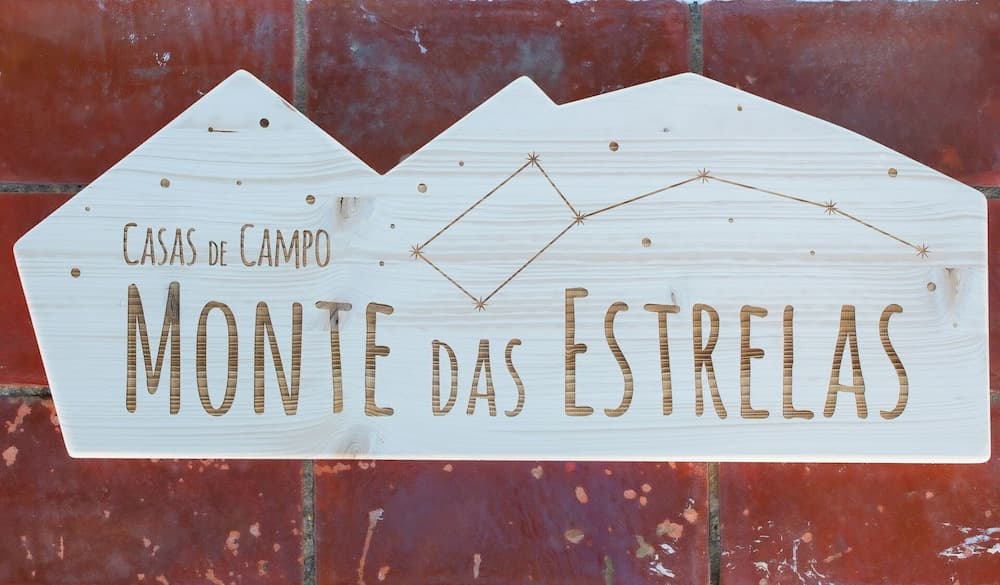 CASAS DE CAMPO
MONTE DAS ESTRELAS